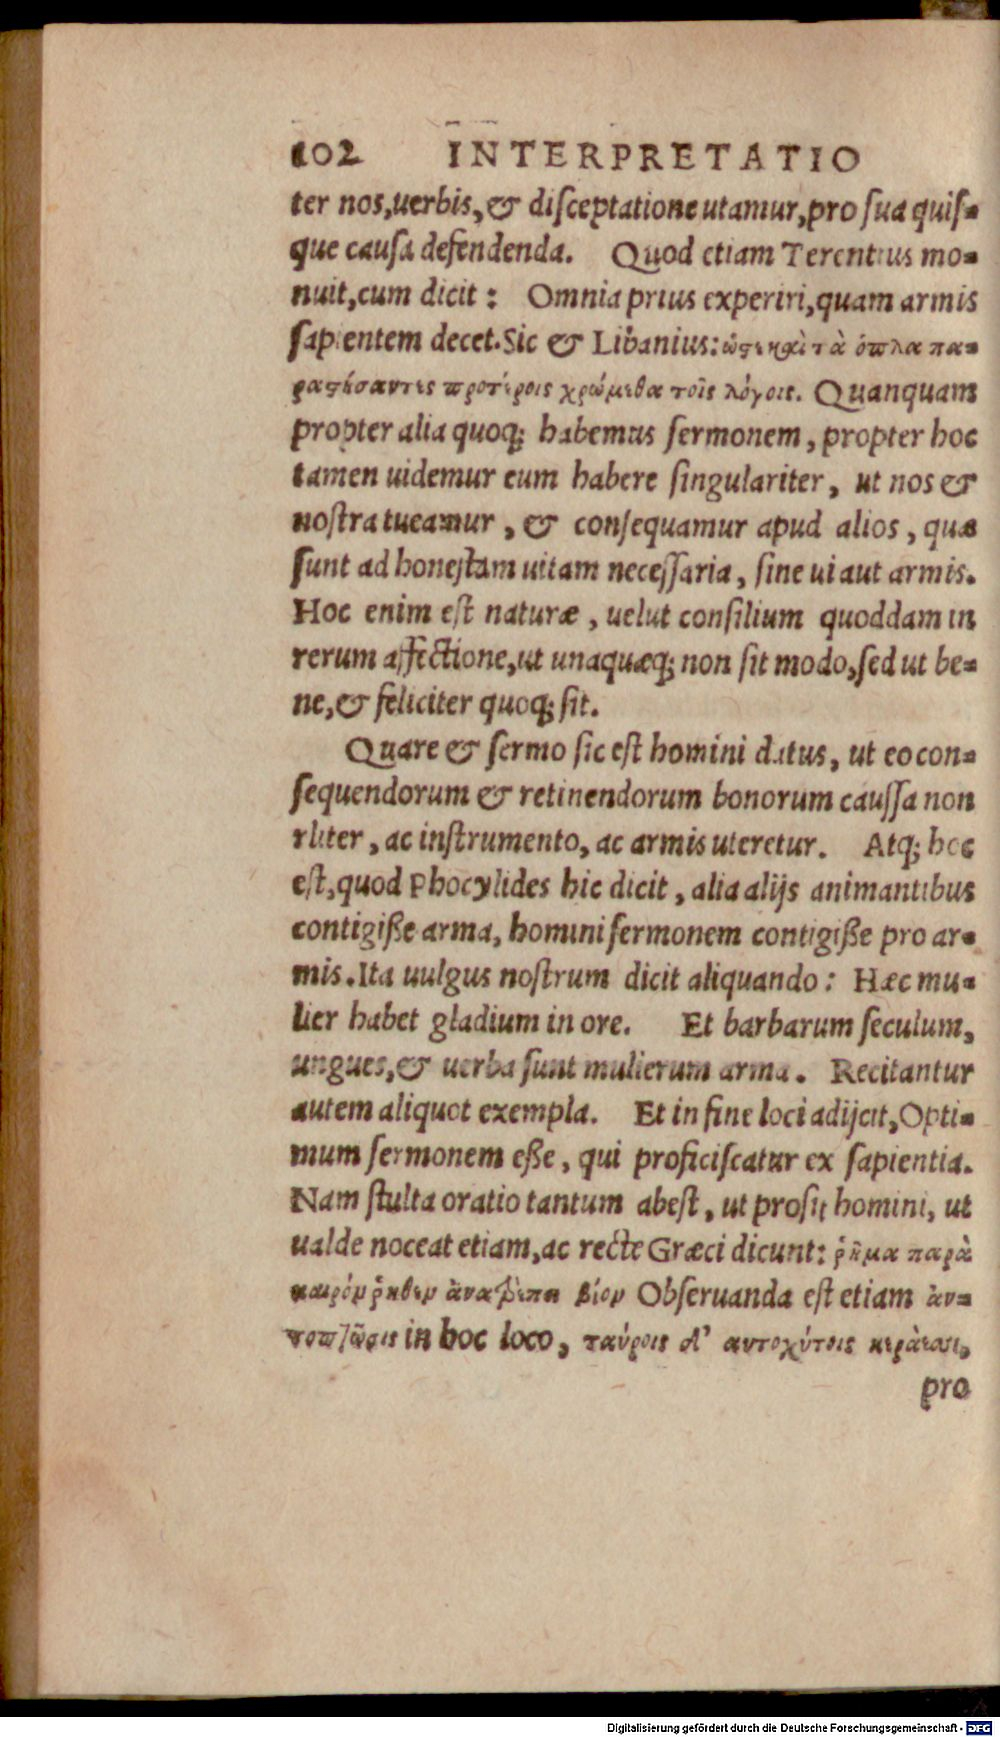 102 INTERPRETATIO
ter nos, uerbis, & disceptatione utamur, pro sua quis-
que causa defendenda. Quod etiam Terentius mo-
nuit, cum dicit: Omnia prius experiri, quam armis
sapientem decet. Sic & Libanius: ὥστε καὶ τὰ ὅπλα πα-
ραστήσαντες προτέροις χρώμεθα τοῖς λόγοις. Quanquam
propter alia quoq; habemus sermonem, propter hoc
tamen uidemur eum habere singulariter, ut nos &
nostra tueamur, & consequamur apud alios, quæ
sunt ad honestam uitam necessaria, sine ui aut armis.
Hoc enim est naturæ, uelut consilium quoddam in
rerum affectione, ut unaquæq; non sit modo, sed ut be-
ne, & feliciter quoq; sit.
Quare & sermo sic est homini datus, ut eo con-
sequendorum & retinendorum bonorum caussa non
aliter, ac instrumento, ac armis uteretur. Atq; hoc
est, quod Phocylides hic dicit, alia alijs animantibus
contigiße arma, homini sermonem contigiße pro ar-
mis. Ita uulgus nostrum dicit aliquando: Hæc mu-
lier habet gladium in ore. Et barbarum seculum,
ungues, & uerba sunt mulierum arma. Recitantur
autem aliquot exempla. Et in fine loci adijcit, Opti-
mum sermonem eße, qui proficiscatur ex sapientia.
Nam stulta oratio tantum abest, ut prosit homini, ut
ualde noceat etiam, ac recte Græci dicunt: ῥῆμα παρὰ
καιρὸν ῥηθὲν ἀνατρέπει βίον Obseruanda est etiam ἀν-
in hoc loco, ταύροις δ' αυτοχύτοις κεράεσσι,
pro
Digitalisierung gefördert durch die Deutsche Forschungsgemeinschaft - DFG